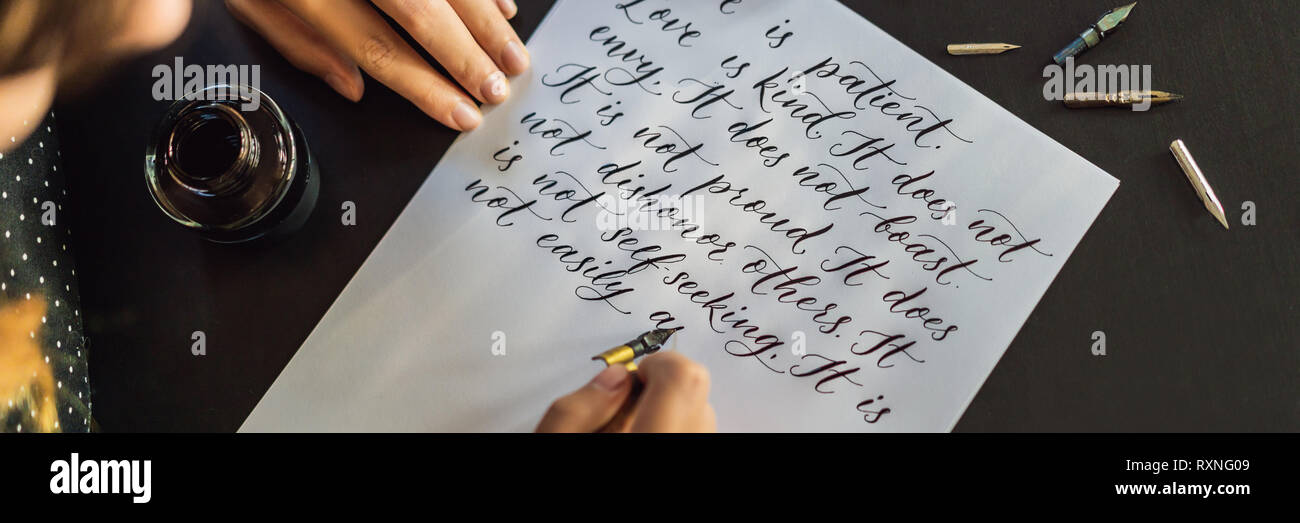 is patient.
Love is kind. It does not
envy. It does not boast.
It is not proud. It does
not dishonor others. It
is not self-seeking. It is
not easily a
alamy
Image ID: RXNG09
www.alamy.com